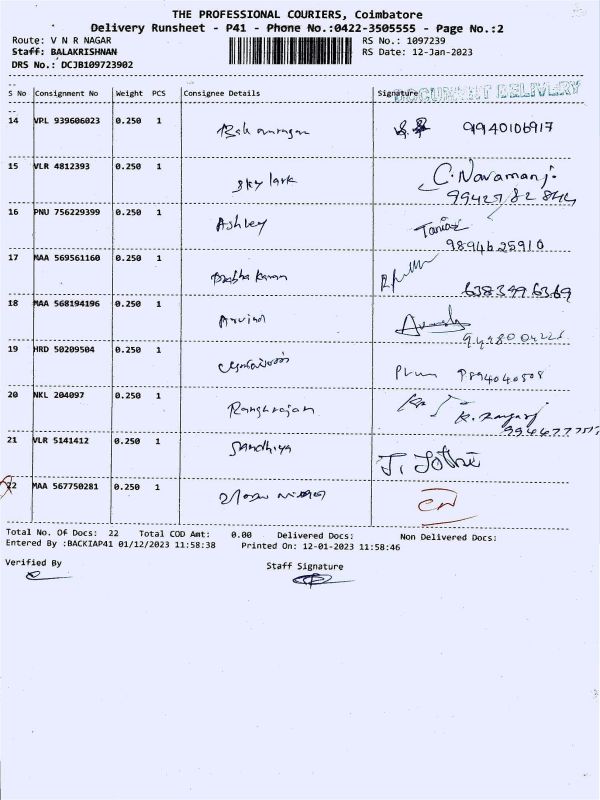 THE PROFESSIONAL COURIERS, Coimbatore
Delivery Runsheet - P41 - Phone No.:0422-3505555 - Page No.:2
Route: V N R NAGAR RS No.: 1097239
Staff: BALAKRISHNAN RS Date: 12-Jan-2023
DRS No.: DCJB109723902
S No Consignment No Weight PCS Consignee Details Signature
DOCUMENT DELIVERY
14 VPL 939606023 0.250 1 9940106917
15 VLR 4812393 0.250 1 Sky lark C. Navamani.
16 PNU 756229399 0.250 1 Ashley
9894625910
17 MAA 569561160 0.250 1
6383996369
18 MAA 568194196 0.250 1 Arvind
19 HRD 50209504 0.250 1 9894040508
20 NKL 204097 0.250 1 Rangarajan
21 VLR 5141412 0.250 1 Sandhiya
22 MAA 567750281 0.250 1
Total No. Of Docs: 22 Total COD Amt: 0.00 Delivered Docs: Non Delivered Docs:
Entered By :BACKIAP41 01/12/2023 11:58:38 Printed On: 12-01-2023 11:58:46
Verified By Staff Signature